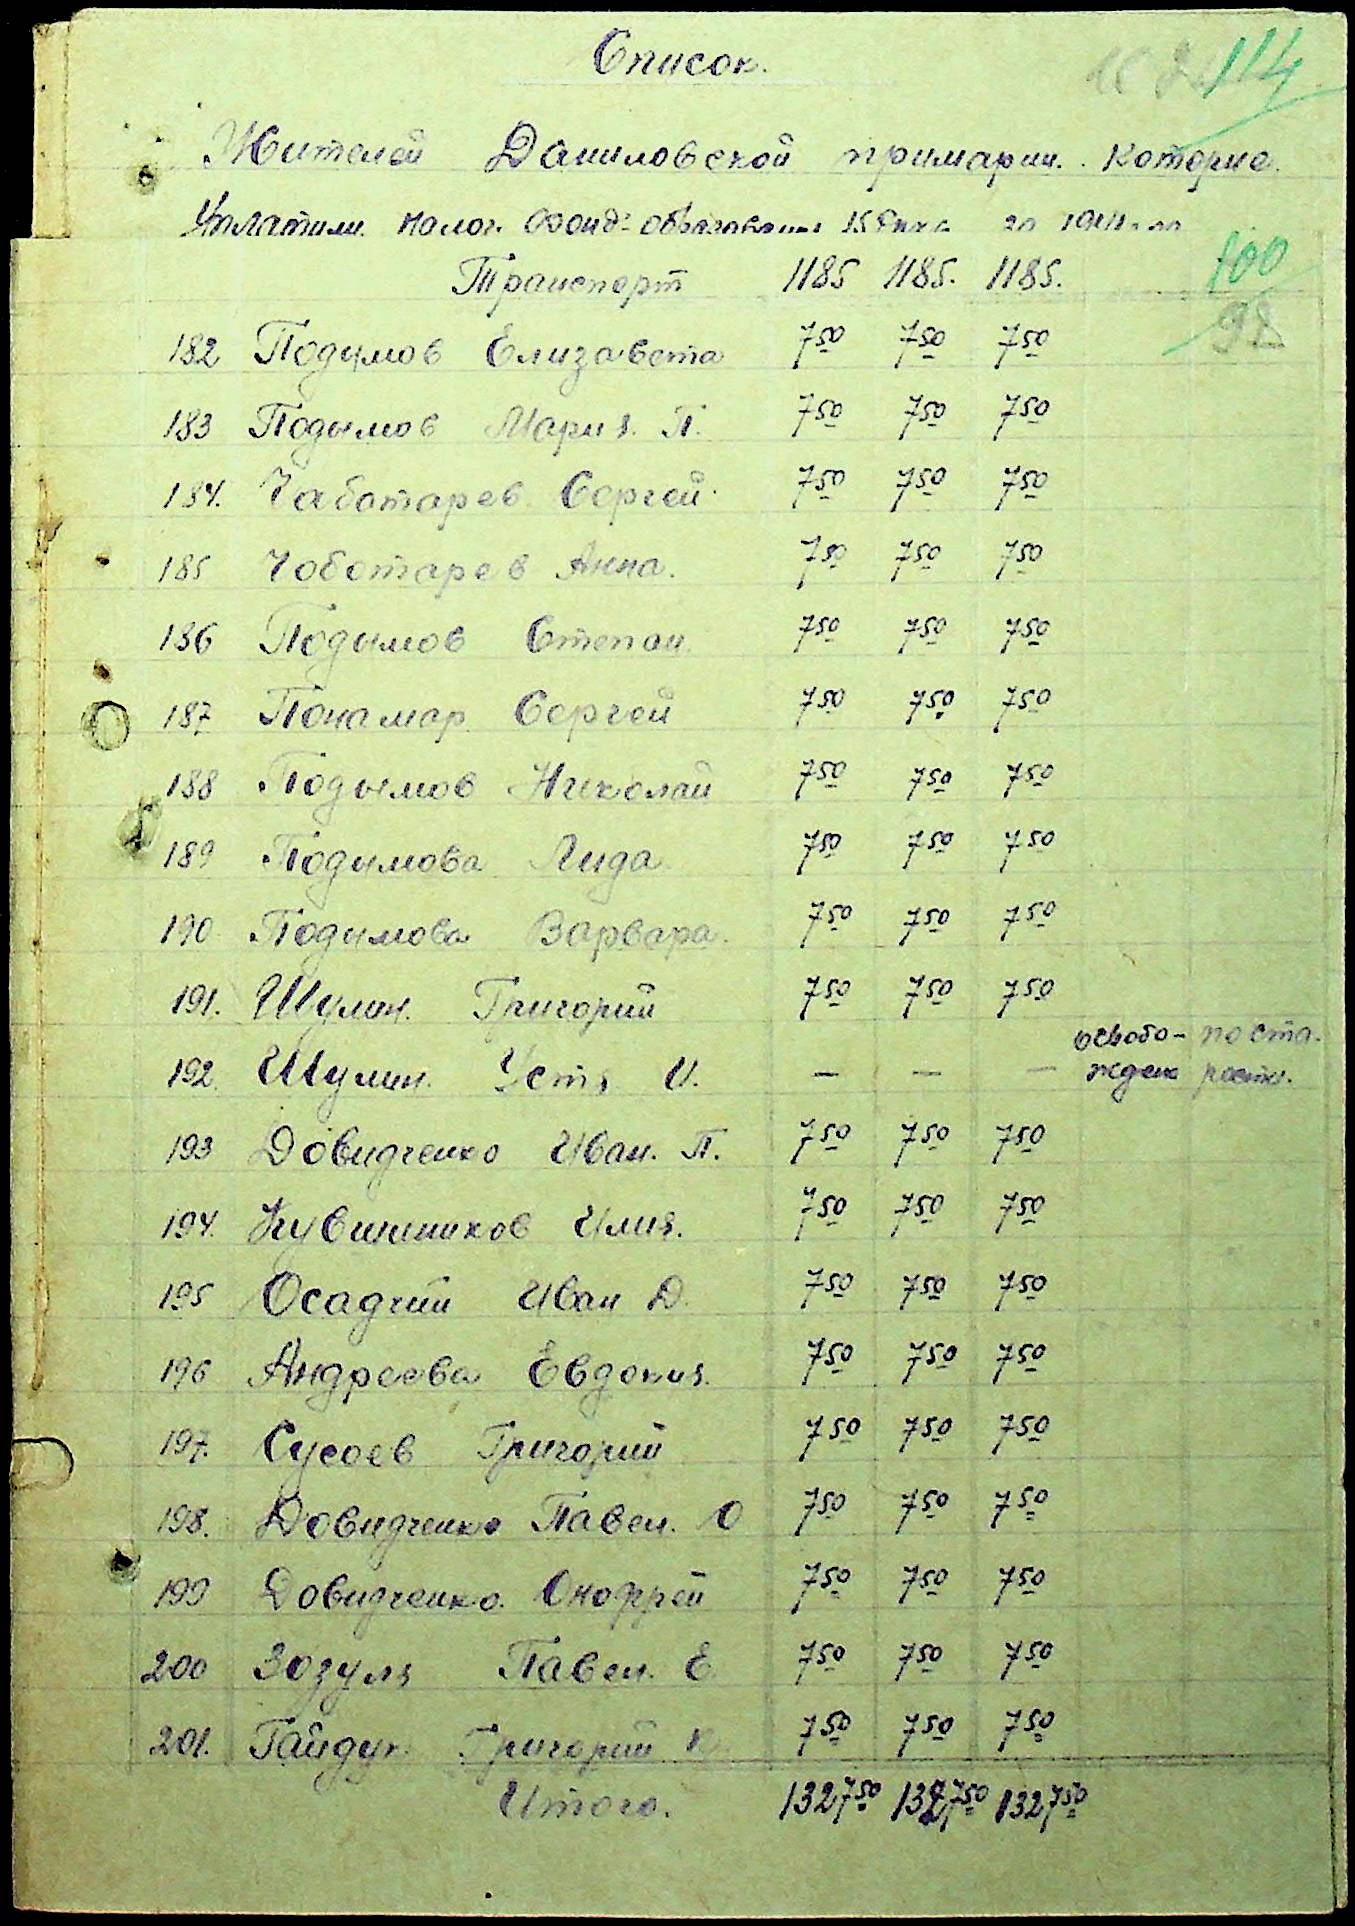 Список.
114
Жителей Даниловской примарии. которие
Уплатили налог. Фонд:
Транспорт 1185 1185. 1185.
100
92
182 Подымов Елизавета 7 50 7 50 7 50
183 Подымов Мария. П. 7 50 7 50 7 50
184. Чаботарев Сергей 7 50 7 50 7 50
185 Чоботарев Анна. 7 50 7 50 7 50
186 Подымов Степан 7 50 7 50 7 50
187 Понамар Сергей 7 50 7 50 7 50
188 Подымов Николай 7 50 7 50 7 50
189 Подымова Лида 7 50 7 50 7 50
190 Подымова Варвара. 7 50 7 50 7 50
191. Шулин. Григорий 7 50 7 50 7 50
192 Шулин. Устя И. — — — освобо- по ста.
ждена рости.
193 Довидченко Иван. П. 7 50 7 50 7 50
194. Кувшинников Илия. 7 50 7 50 7 50
195 Осадчий Иван Д. 7 50 7 50 7 50
196 Андреева Евдокия. 7 50 7 50 7 50
197. Сусоев Григорий 7 50 7 50 7 50
198. Довидченко Павел. О 7 50 7 50 7 50
199 Довидченко. Онофрей 7 50 7 50 7 50
200 Зозуля Павел. Е 7 50 7 50 7 50
201. Гайдук Григорий К 7 50 7 50 7 50
Итого. 1327 50 1327 50 1327 50